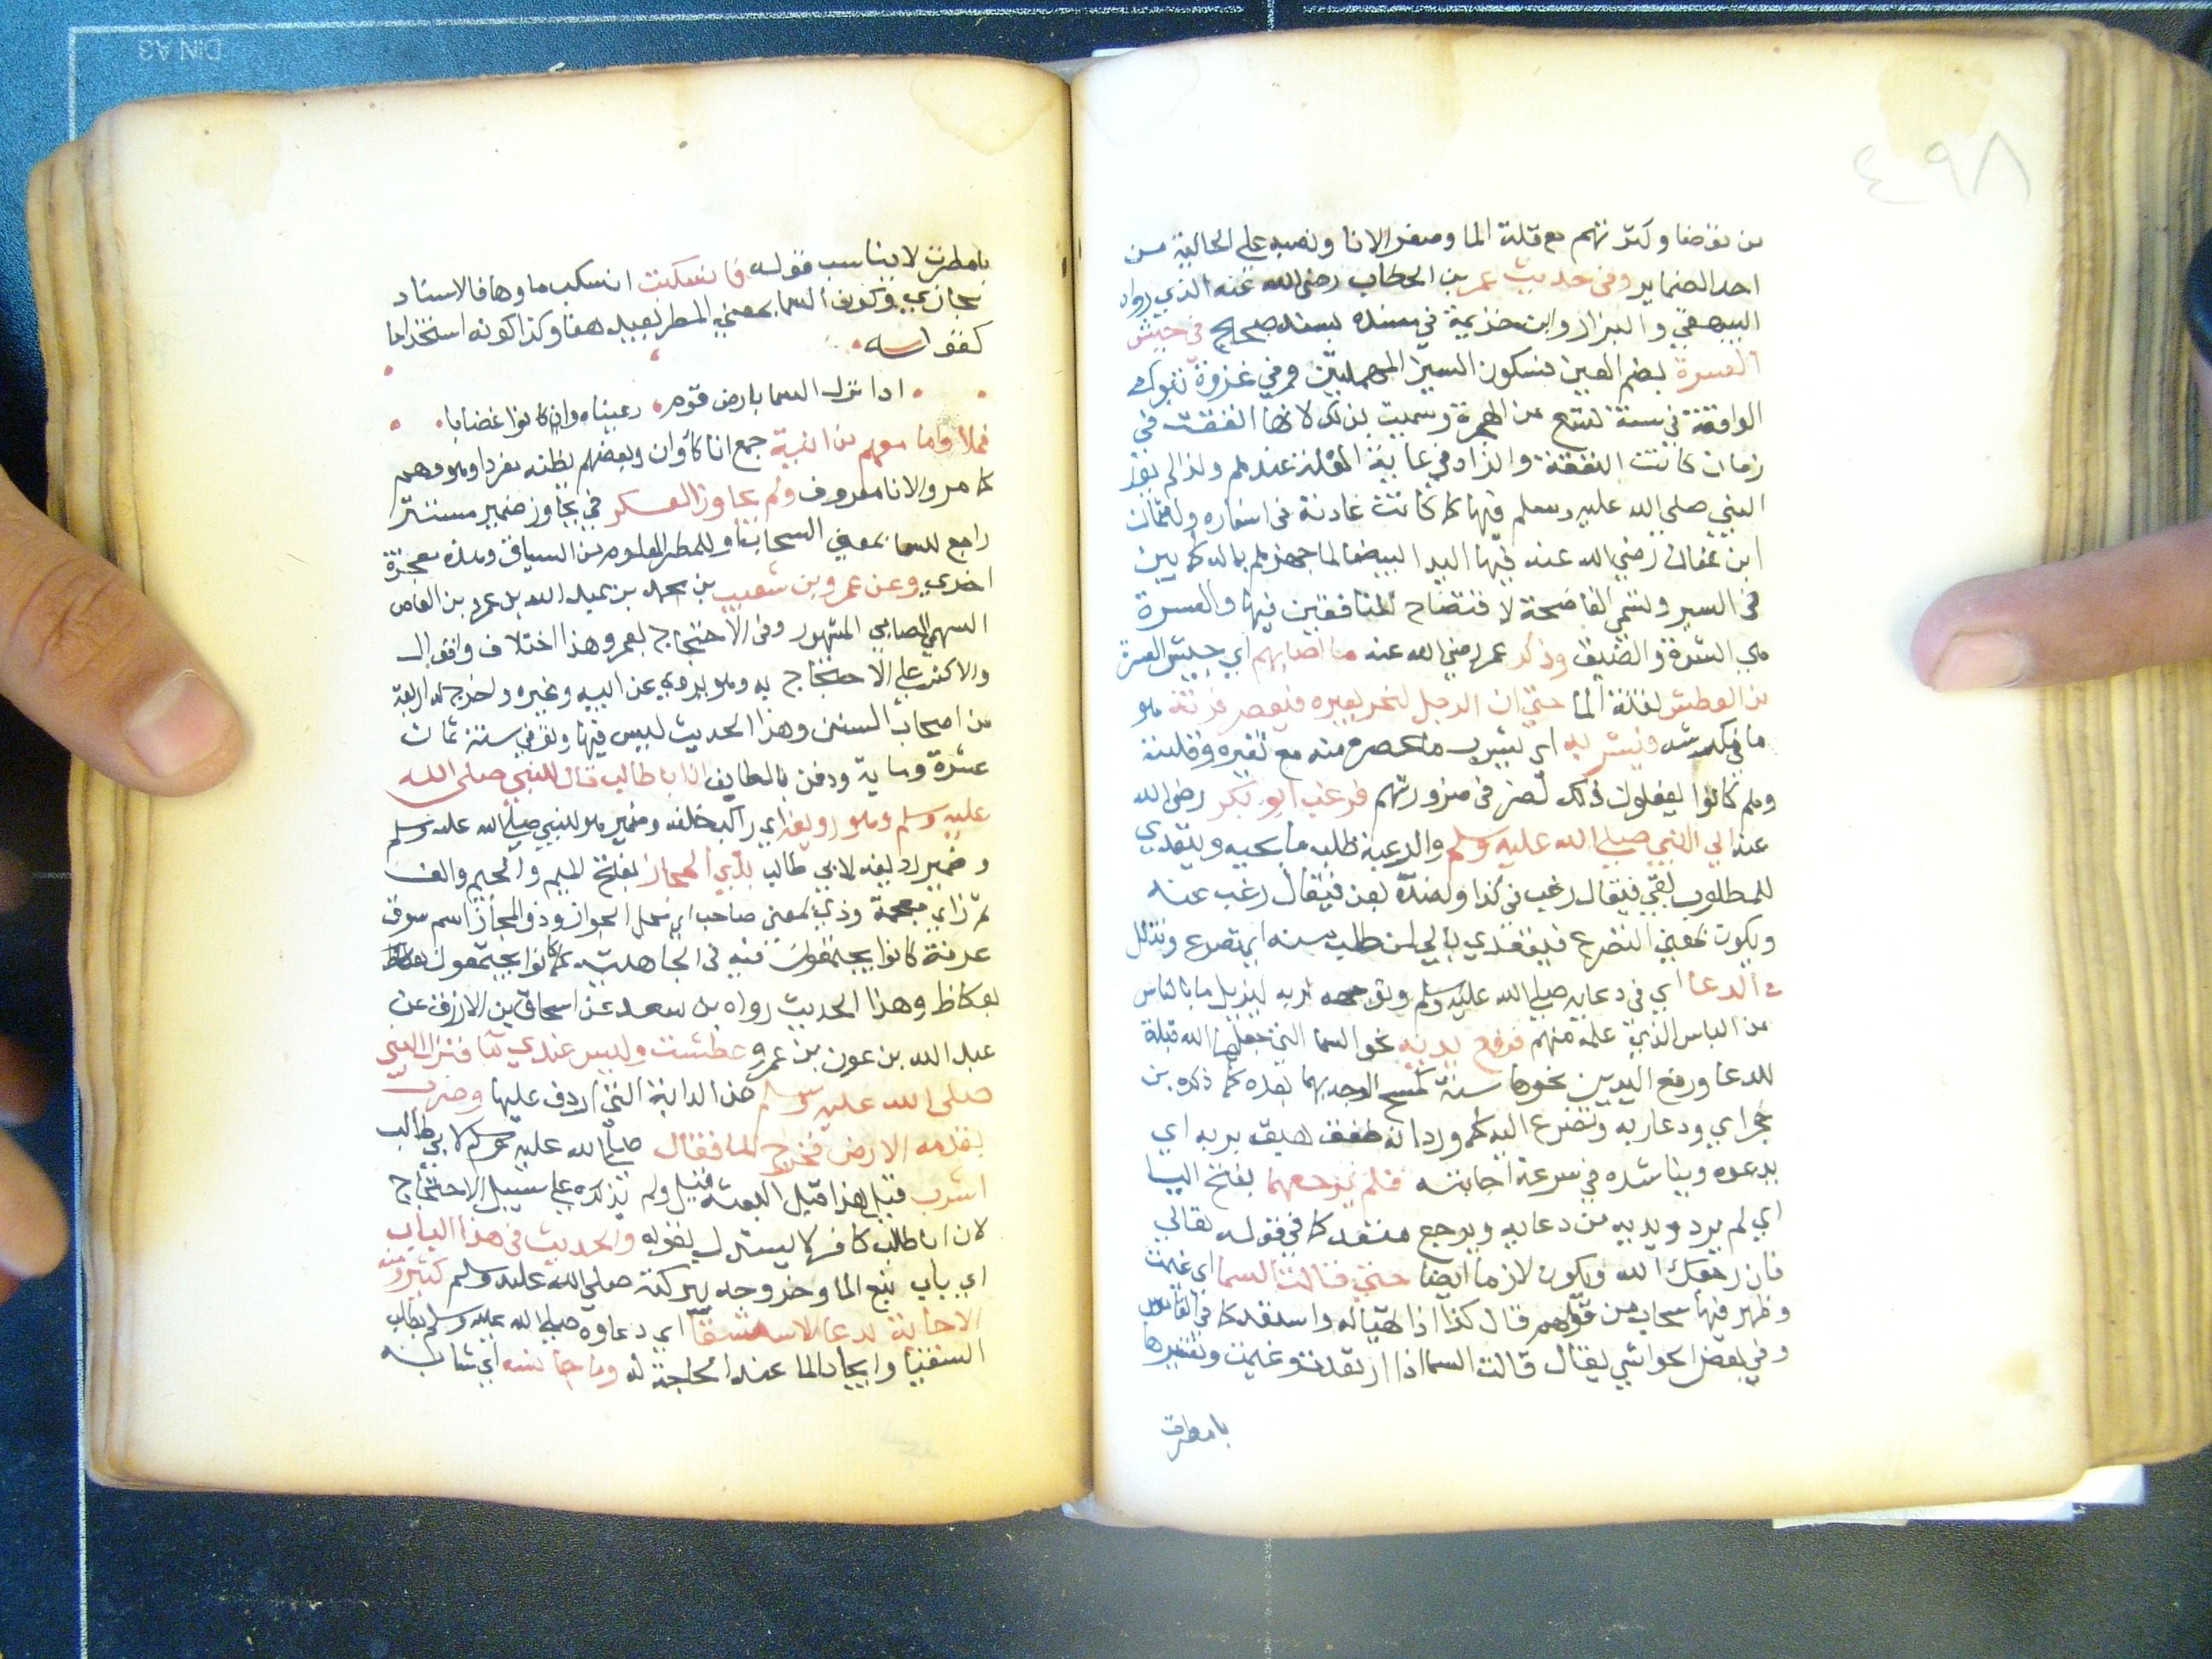 ٤٩٨
من توضا وكثرتهم مع قلة الما وصغر الانا ونصبه على الحالية من
احد الضماير وفى حديث عمر بن الخطاب رضى الله عنه الذي رواه
البيهقي والبزار وابن خزيمة في مسنده بسند صحيح في جيش
العسرة بضم العين وسكون السين المهملتين وهي غزوة تبوك
الواقعة في سنة تسع من الهجرة وسميت بذلك لانها اتفقت في
زمان كانت النفقة والزاد في غاية القلة عندهم ولذا لم يغز
النبي صلى الله عليه وسلم فيها كما كانت عادته في اسفاره ولعثمان
ابن عفان رضي الله عنه فيها اليد البيضا لما جهزهم بماله كما بين
فى السير وتسمى الفاضحة لافتضاح المنافقين فيها والعسرة
هي الشدة والضيق وذكر عمر رضي الله عنه ما اصابهم اي جيش العسرة
من العطش لقلة الما حتى ان الرجل لينحر بعيره فيعصر فرثه هو
ما في كرشه فيشربه اي يشرب ما عصره منه مع تغيره وقلته
وهم كانوا يفعلون ذلك لضر في ضرورتهم فرغب ابو بكر رضى الله
عنه الي النبي صلى الله عليه وسلم والرغبة طلب ما يحبه ويتعدي
للمطلوب بفي فيقال رغب في كذا ولضده بعن فيقال رغب عنه
ويكون بمعنى التضرع فيتعدي بالي لمن طلب منه اي تضرع وتذلل
في الدعا اي في دعايه صلى الله عليه وسلم وتوجهه لربه ليزيل ما بالناس
من الباس الذي علمه منهم فرفع يديه نحو السما التي جعلها الله قبلة
للدعا ورفع اليدين نحوها سنة كمسح الوجه بهما بعده كما ذكره بن
حجر اي ودعا ربه وتضرع اليه كما ورد انه طفق هيق بربه اي
يدعوه ويناشده في سرعة اجابته فلم يرجعهما بفتح اليا
اي لم يرد يديه من دعايه ويرجع متعد كما في قوله تعالى
فان رجعك الله ويكون لازما ايضا حتى قالت السما اي غيمت
وظهر فيها سحاب من قولهم قال كذا اذا تهيا له واستعد كما في القاموس
وفي بعض الحواشي يقال قالت السما اذا ارتعدت وغيمت وتفسيرها
بامطرت
بامطرت لا يناسب قوله فانسكبت انسكب ماوها فالاسناد
مجازي وكون السما بمعنى المطر بعيد هنا وكذا كونه استخداما
كقوله
اذا نزل السما بارض قوم رعيناه وان كانوا غضابا
فملاوا ما معهم من انية جمع انا كأوان وبعضهم يظنه مفردا وهو وهم
كما مر والانا معروف ولم يجاوز العسكر في يجاوز ضمير مستتر
راجع للسما بمعنى السحاب او للمطر المعلوم من السياق وهذه معجزة
اخري وعن عمرو بن شعيب بن محمد بن عبد الله بن عمرو بن العاص
السهمي الصحابي المشهور وفي الاحتجاج بعمرو هذا اختلاف واقوال
والاكثر على الاحتجاج به وهو يروي عن ابيه وغيره واخرج له اربعة
من اصحاب السنن وهذا الحديث ليس فيها وتوفي سنة ثمان
عشرة وماية ودفن بالطايف ان ابا طالب قال للنبي صلى الله
عليه وسلم وهو رديفه اي راكب خلفه وضمير هو للنبي صلى الله عليه وسلم
وضمير رديفه لابي طالب بذي المجاز بفتح الميم والجيم والف
ثم زاي معجمة وذي بمعنى صاحب اي محل الجواز وذو المجاز اسم سوق
عرفة كانوا يجتمعون فيه في الجاهلية كما كانوا يجتمعون
بعكاظ وهذا الحديث رواه بن سعد عن اسحاق بن الازرق عن
عبد الله بن عون بن عمرو عطشت وليس عندي ما فنزل النبي
صلى الله عليه وسلم عن الدابة التي اردف عليها وضرب
بقدمه الارض فخرج الما فقال صلى الله عليه وسلم لابي طالب
اشرب قيل هذا قبل البعثة قيل ولم يذكره على سبيل الاحتجاج
لان ابا طالب كافر لا يستدل بقوله والحديث في هذا الباب
اي باب نبع الما وخروجه ببركته صلى الله عليه وسلم كثير ومنه
الاجابة بدعا الاستسقا اي دعاوه صلى الله عليه وسلم بطلب
السقيا وايجاد الما عند الحاجة له وما جانسه اي شابهه